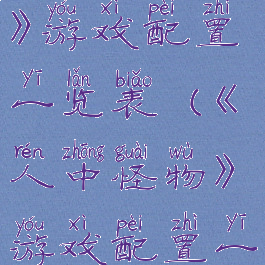 yóu xì pèi zhì
》游戏配置
yī lǎn biǎo
一览表（《
rén zhōng guài wù
人中怪物》
yóu xì pèi zhì yī
游戏配置一